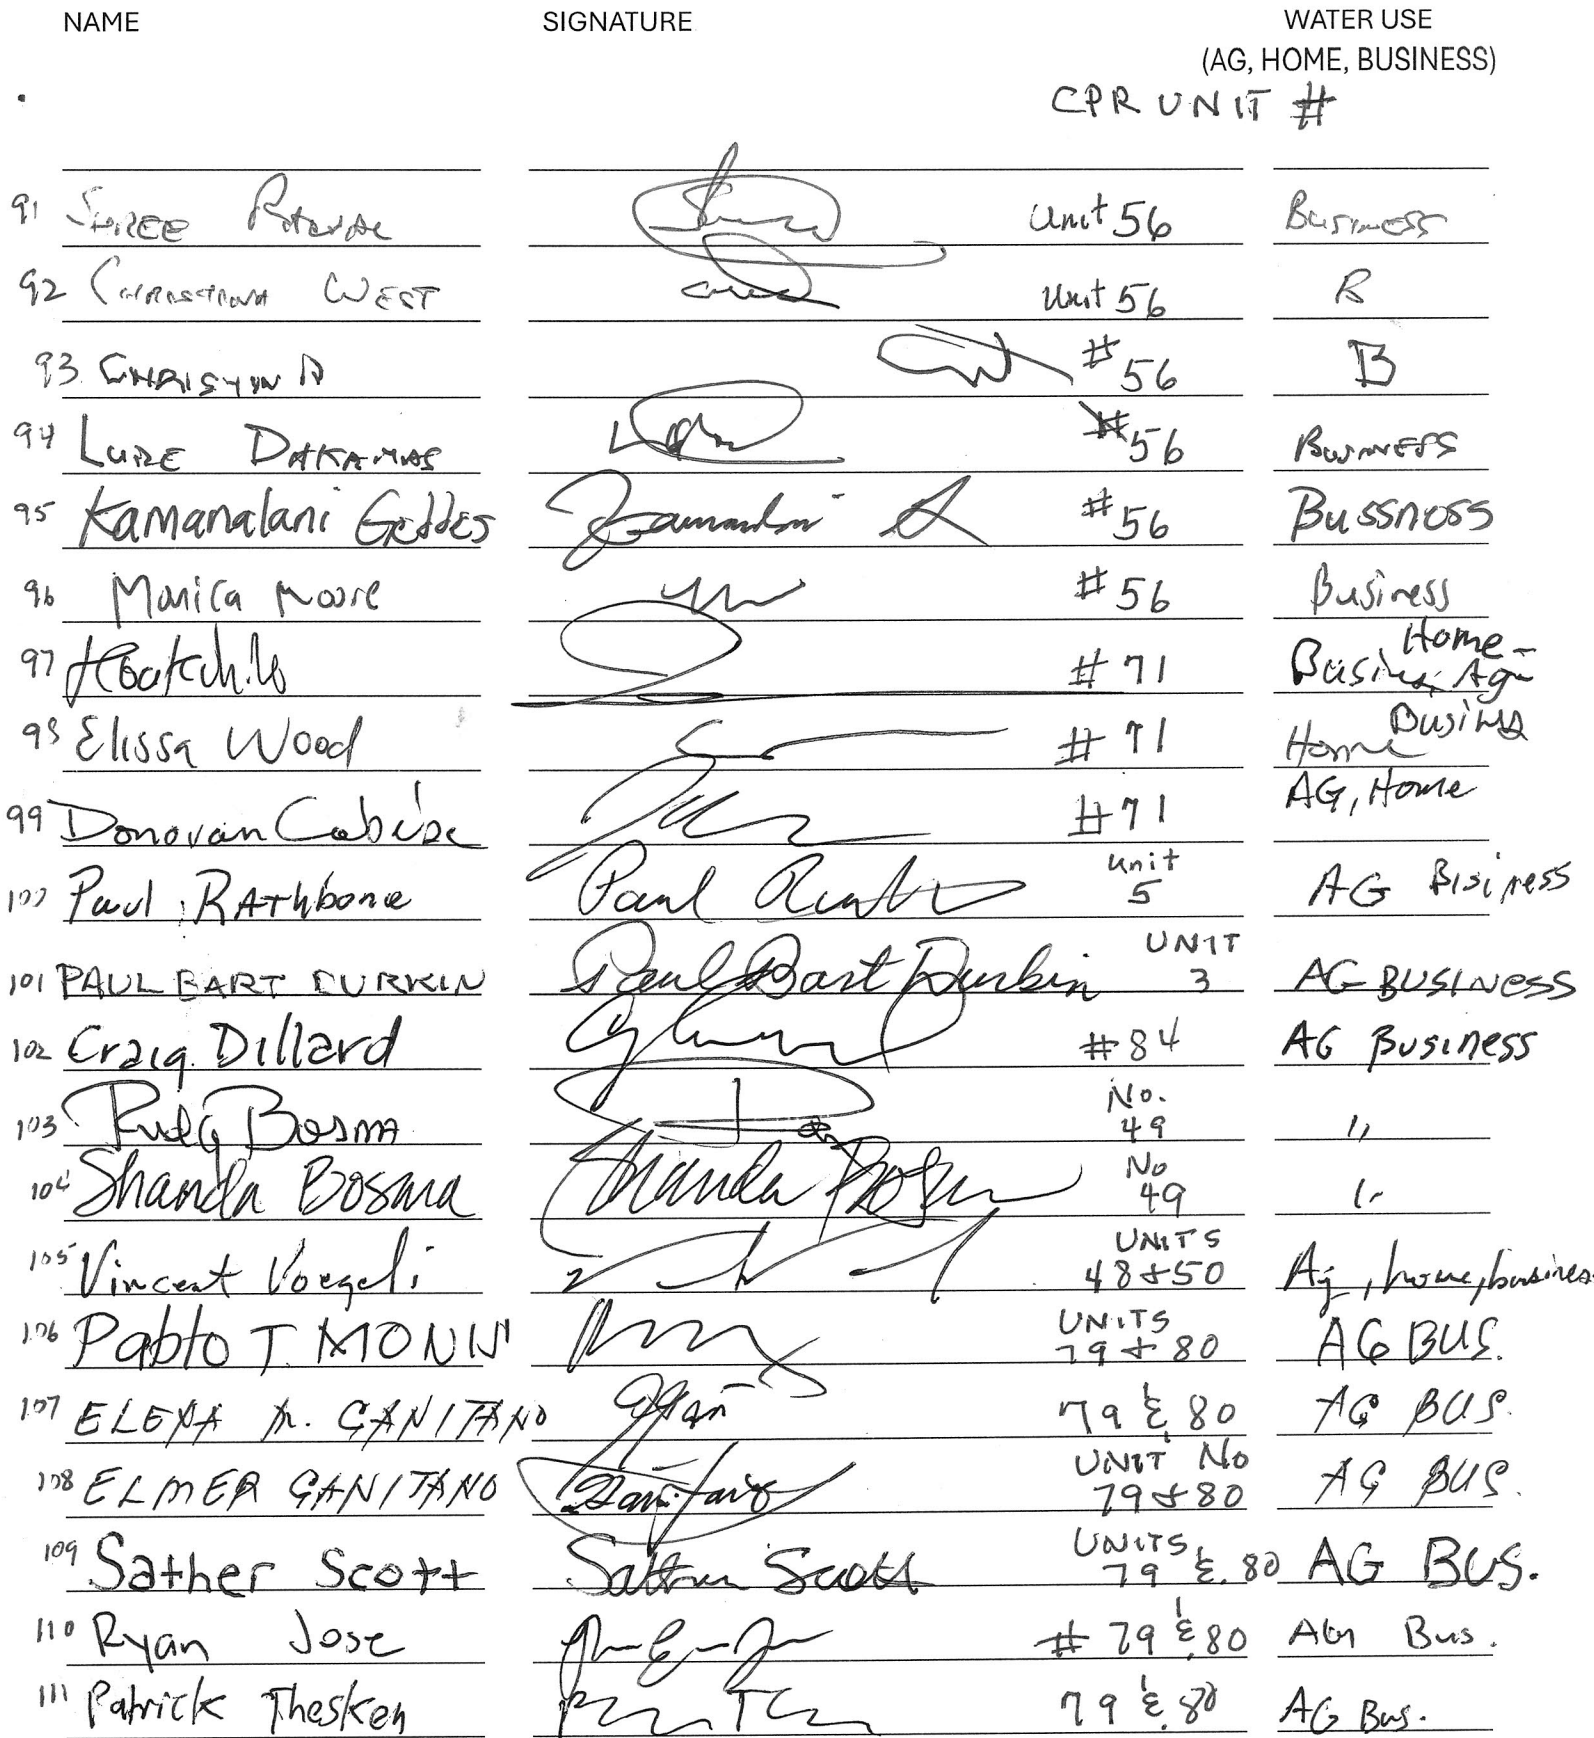 NAME SIGNATURE WATER USE
(AG, HOME, BUSINESS)
CPR UNIT #
91 SHREE Unit 56 BUSINESS
92 CHRISTINA WEST Unit 56 B
93 #56 B
94 LUKE #56 BUSINESS
95 Kamanalani GEddES #56 Bussness
96 Monica Moore #56 Business
97 #71 Business Home - Ag
98 Elissa Wood #71 Home Business
99 Donovan Cabebe #71 AG, Home
100 Paul RAThbone Paul Unit 5 AG Bisiness
101 PAUL BART DURKIN Paul Bart Durkin UNIT 3 AG BUSINESS
102 Craig Dillard #84 AG Business
103 BOSMA No. 49 "
104 Shanda Bosma Shanda Bosma No 49 "
105 Vincent Voegeli UNITS 48 & 50 Ag, home, business
106 Pablo T. UNITS 79 & 80 AG BUS.
107 ELENA M. GANITANO 79 & 80 AG BUS.
108 ELMER GANITANO UNIT No 79 & 80 AG BUS.
109 Sather Scott Sather Scott UNITS 79 & 80 AG BUS.
110 Ryan Jose # 79 & 80 AG Bus.
111 Patrick Thesken 79 & 80 AG Bus.